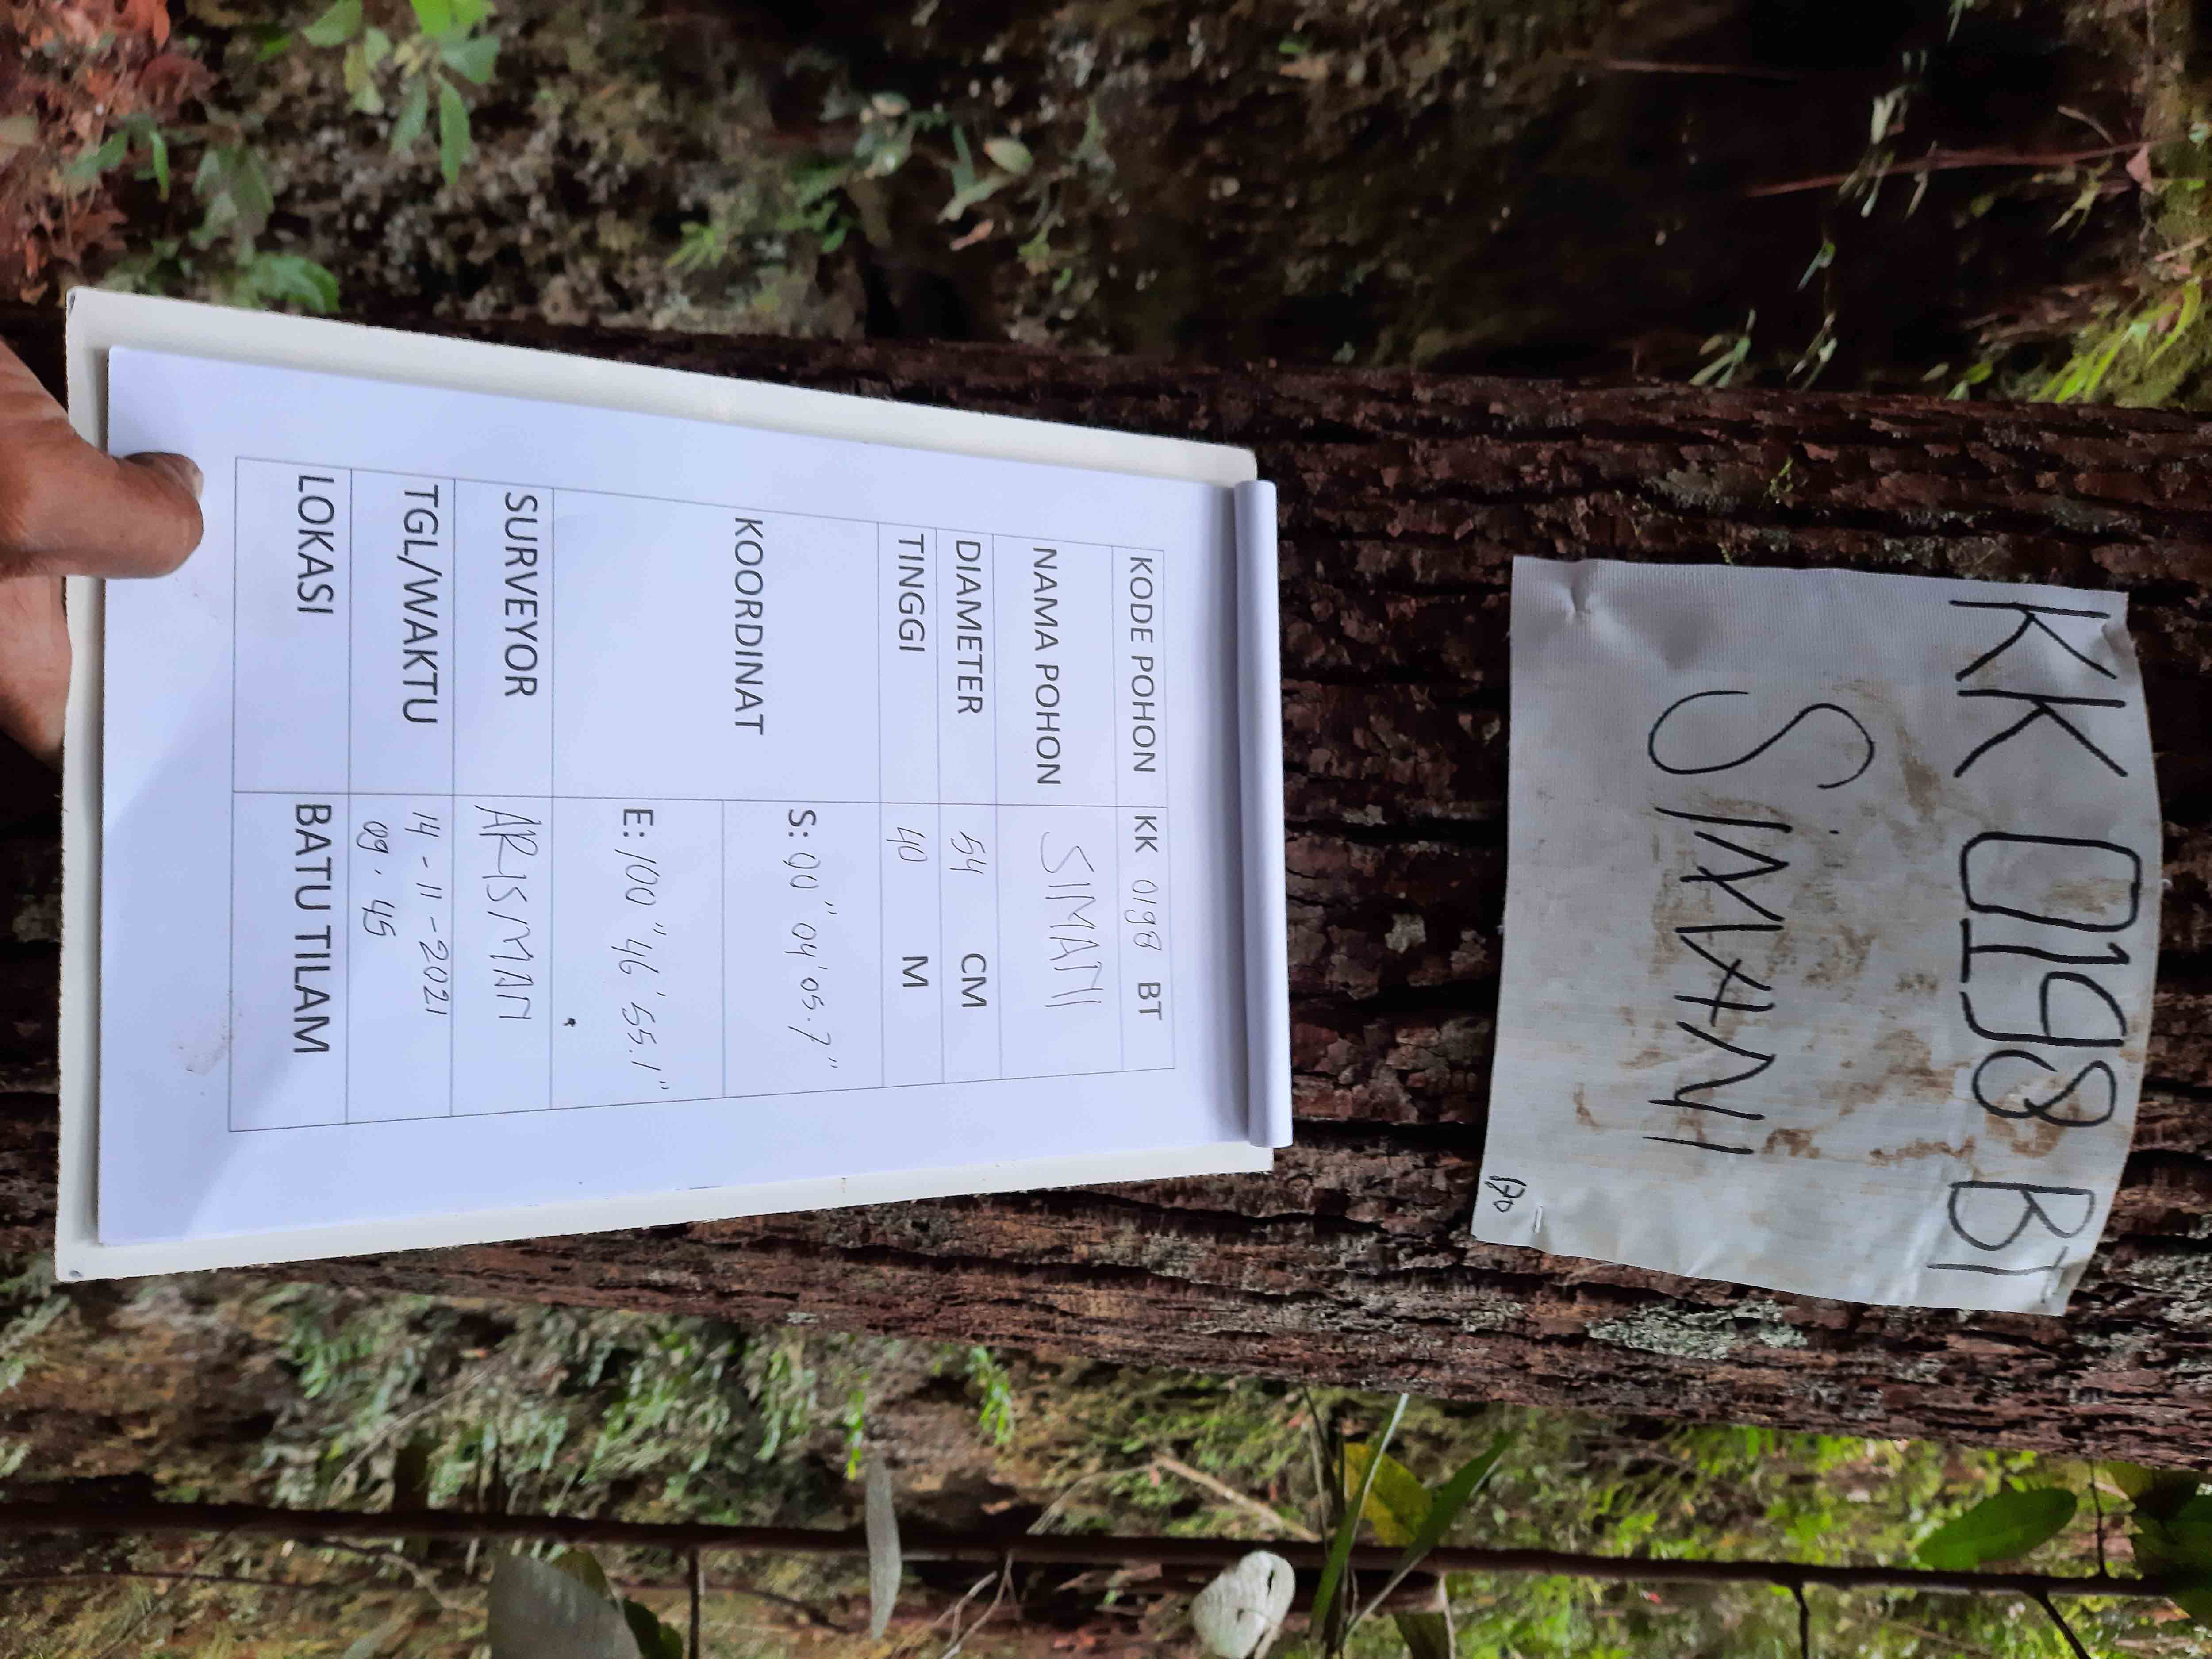 KK 0198 BT
SIMANI
KODE POHON KK 0198 BT
NAMA POHON SIMANI
DIAMETER 54 CM
TINGGI 40 M
KOORDINAT S: 00" 04' 05.7"
E: 100" 46' 55.1"
SURVEYOR ARISMAN
TGL/WAKTU 14 - 11 - 2021
09 . 45
LOKASI BATU TILAM